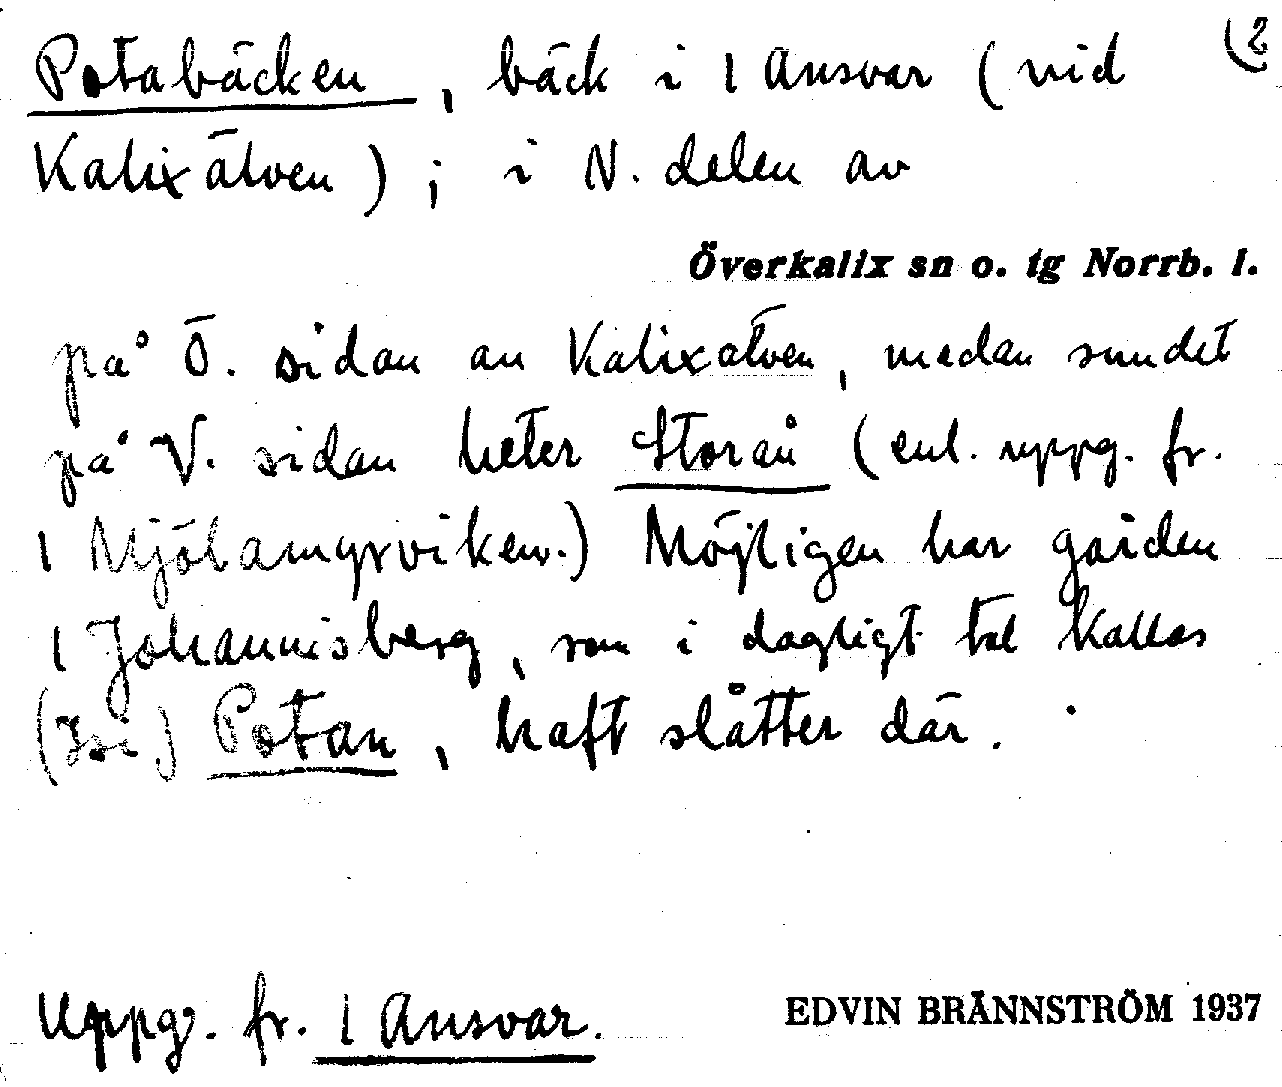 (2
Potabäcken, bäck i 1 Ansvar (vid
Kalixälven); i N. delen av
Överkalix sn o. tg Norrb. l.
på Ö. sidan av Kalixälven, medan sundet
på V. sidan heter Storån (enl. uppg. fr.
1 Mjölamyrviken.) Möjligen har gården
1 Johannisberg, som i dagligt tal kallas
Potan, haft slåtter där.
Uppg. fr. 1 Ansvar.
EDVIN BRÄNNSTRÖM 1937